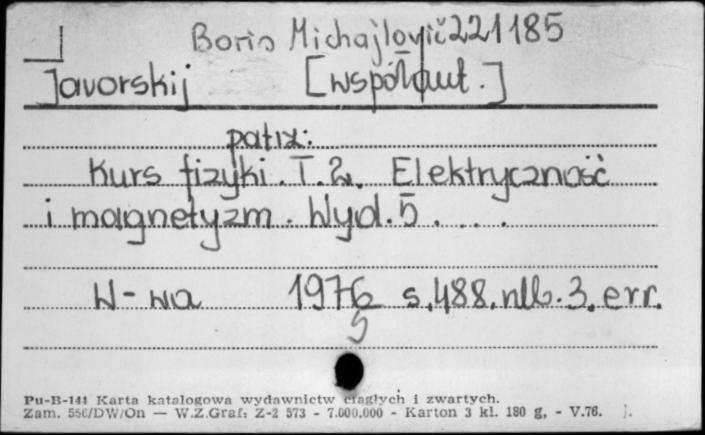 Boris Michajlovič 221185
Javorskij [współaut.]
patrz:
Kurs fizyki. T. 2. Elektryczność
i magnetyzm. Wyd. 5 . . . .
W-wa 1976 s. 488. nlb. 3. err.
5
Pu-B-144 Karta katalogowa wydawnictw ciągłych i zwartych.
Zam. 556/DW/On — W.Z.Graf: Z-2 573 - 7.000.000 - Karton 3 kl. 180 g, - V.76.